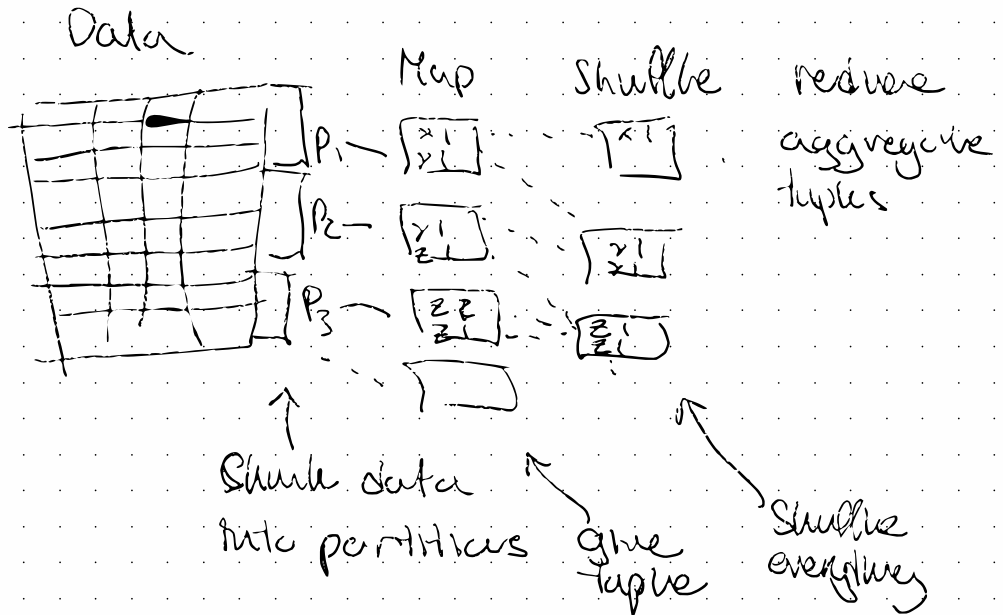 Data
Map
Shuffle
reduce
aggregate
tuples
P1
x 1
y 1
x 1
P2
y 1
z 1
y 1
y 1
P3
z z
z 1
z 1
z 1
data
into partitions
give
tuple
Shuffle
everything